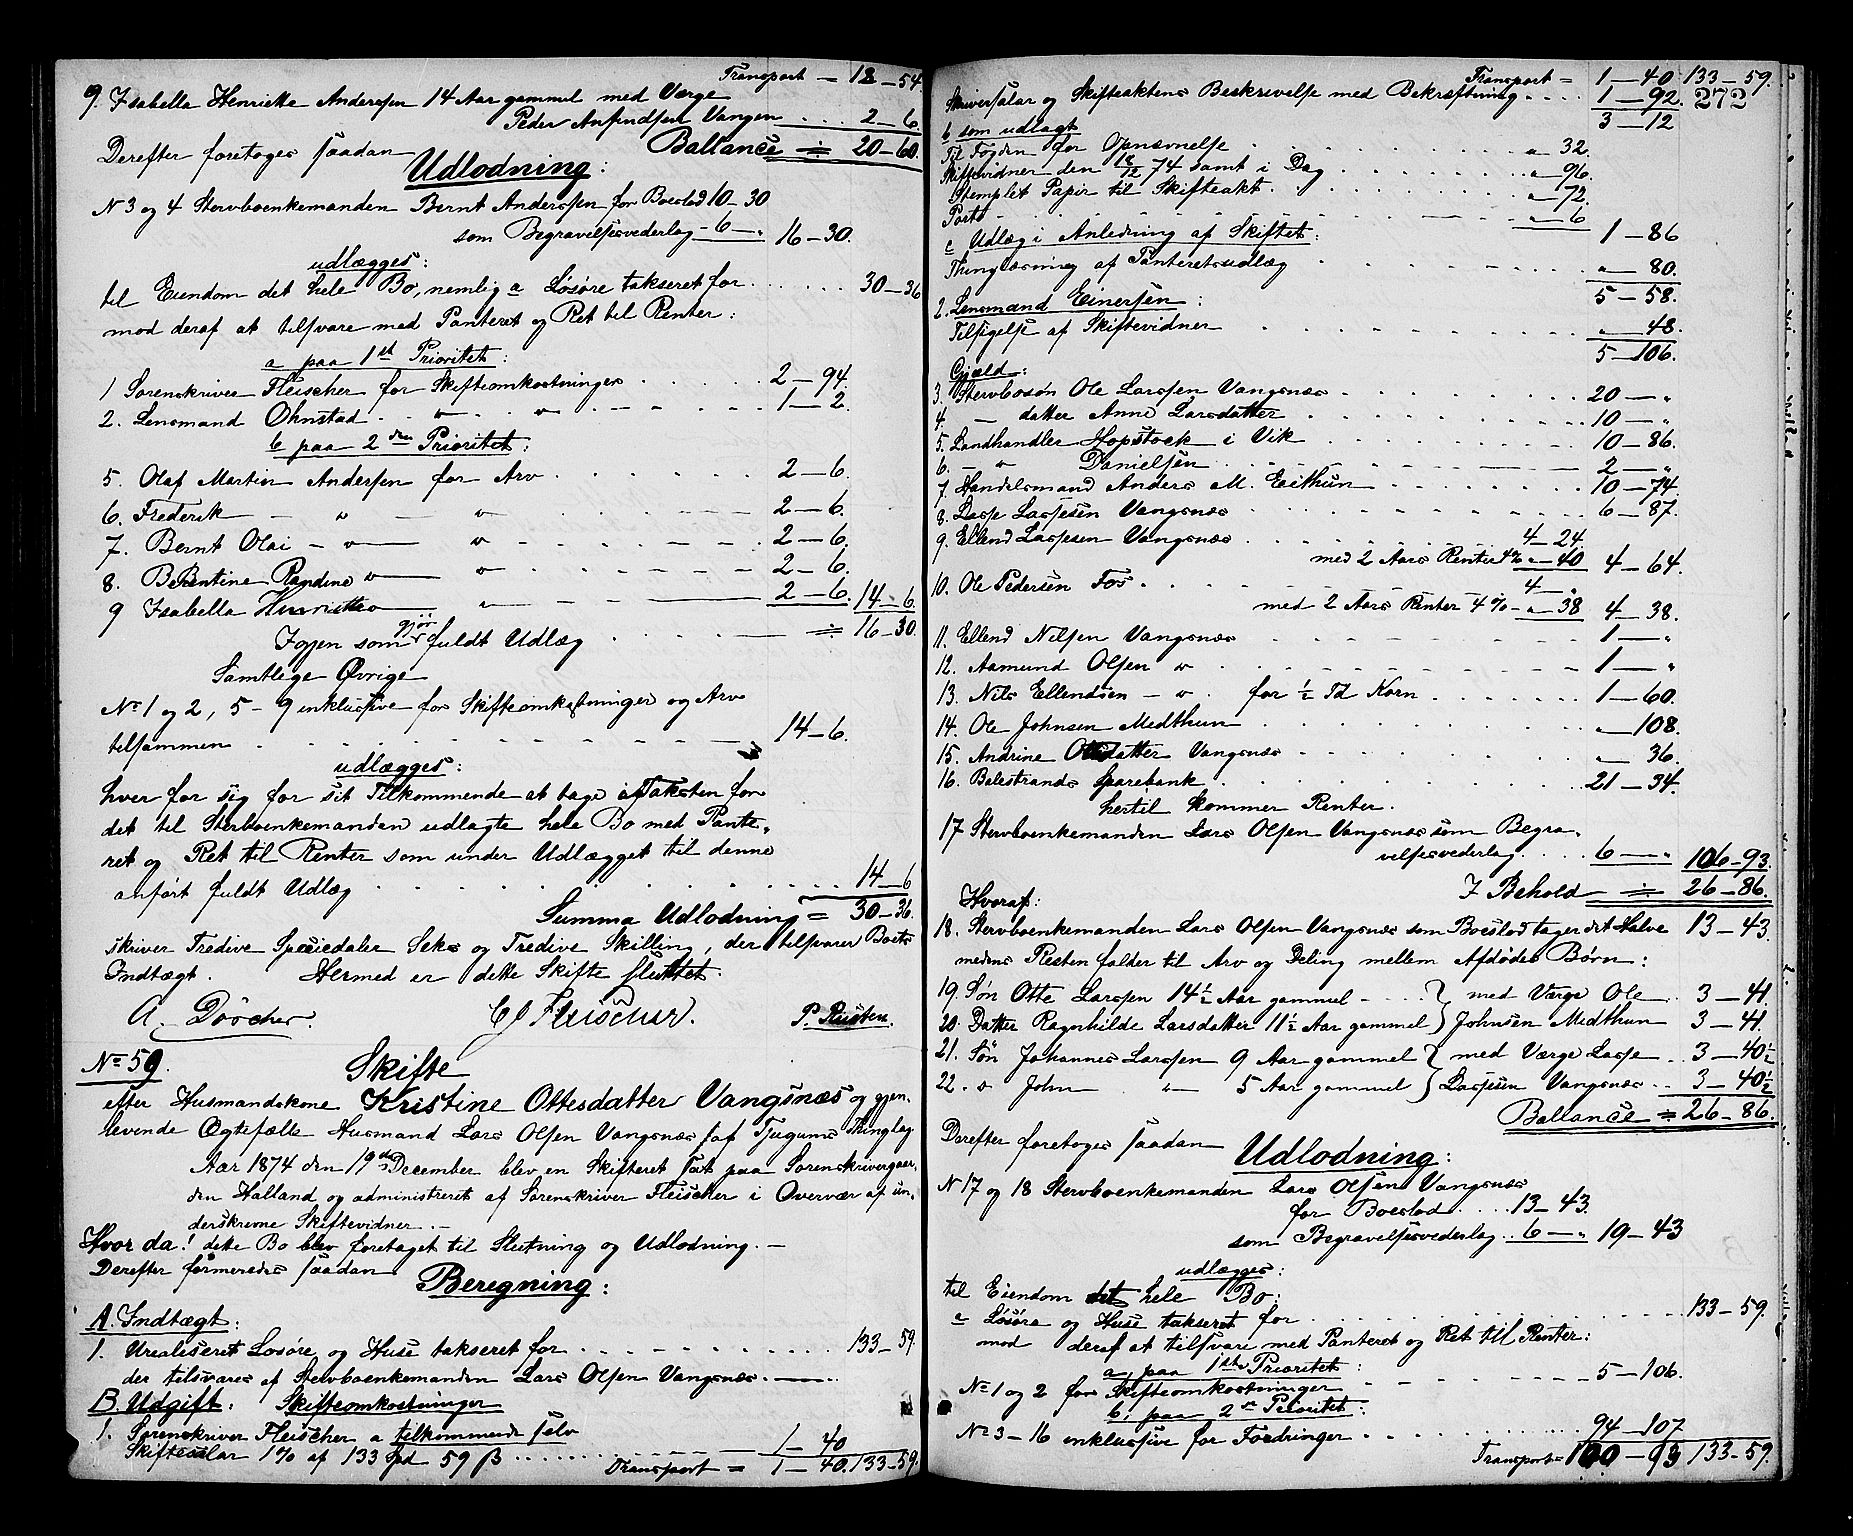 Transport = 18 — 54
9. Isabella Henrikke Anderssen 14 Aar gammel med Værge
Peder Anfindsen Vangen . . . 2 — 6.
Ballance ÷ 20 — 60.
Derefter foretoges saadan
Udlodning:
N 3 og 4 Stervboenkemanden Bernt Anderssen for Boeslod 10 — 30
som Begravelsesvederlag — 6 — „ 16 — 30.
udlægges:
til Eiendom det hele Bo, nemlig a Løsøre takseret for . . . . . . 30 — 36
mod deraf at tilsvare med Panteret og Ret til Renter:
a paa 1st Prioritet:
1 Sorenskriver Fleischer for Skifteomkostninger . . . . . 2 — 94.
2. Lensmand Ohnstad . . „ . . „ . . — — — 1 — 2.
b paa 2den Prioritet:
5. Olaf Martin Anderssen for Arv . . . . . . 2 — 6.
6. Frederik — „ — „ . . . . — — — 2 — 6.
7. Bernt Olai — „ — „ . . — — — 2 — 6.
8. Berentine Randine „ — „ . . — — — 2 — 6.
9 Isabella Henriette — „ — — — 2 — 6. 14 — 6.
Igjen som gjør fuldt Udlæg . . . . . — ÷ 16 — 30.
Samtlige Øvrige
No 1 og 2, 5 — 9 inklusive for Skifteomkostninger og Arv
tilsammen . . . . . . — — — — 14 — 6.
udlægges:
hver for sig for sit Tilkommende at tage i Taksten for
det til Sterboenkemanden udlagte hele Bo med Pante-
ret og Ret til Renter som under Udlægget til denne
anført fuldt Udlæg . . . . . . . . . . . 14 — 6
Summa Udlodning = 30 — 36.
skriver Tredive Speciedaler Seks og Tredive Skilling, der tilsvarer Boets
Indtægt. Hermed er dette Skifte sluttet.
A. Döscher. CJ Fleischer. P. Rusten.
No 59. Skifte
efter Husmandskone Kristine Ottesdatter Vangsnæs og gjen-
levende Ægtefælle Husmand Lars Olsen Vangsnæs af Tjugums Thinglag
Aar 1874 den 19de December blev en Skifteret sat paa Sorenskrivergaar-
den Halland og administreret af Sorenskriver Fleischer i Overvær af un-
derskrevne Skiftevidner. —
Hvor da! dette Bo blev foretaget til Slutning og Udlodning. —
Derefter formeredes saadan
Beregning:
A. Indtægt:
1. Urealiseret Løsøre og Huse takseret for . . — — — . . . . . . 133 — 59.
der tilsvares af Stervboenkemanden Lars Olsen Vangsnæs. —
B. Udgift: Skifteomkostninger
1. Sorenskriver Fleischer a tilkommende selv
Skiftesalær 1% af 133 Spd 59 β . . . . . . . — — — 1 — 40
Transport = 1 — 40. 133 — 59.
Transport = 1 — 40 133 — 59.
Skriversalær og Skifteaktens Beskrivelse med Bekræftning . . . . 1 — 92. 272
3 — 12
b som udlagt
Til Fogden for Opnævnelse . . . . . . . . „ 32.
Skiftevidner den 18/12 74 samt i Dag . . . . . . . „ — 96.
Stemplet Papir til Skifteakt . . . . . . . „ — 72.
Porto — . . . . . . . . . „ — 6
1 — 86
c Udlæg i Anledning af Skiftet:
Thinglæsning af Panteretsudlæg . . . . . . . „ — 80.
5 — 58.
2. Lensmand Einersen:
Tilsigelse af Skiftevidner . . . . . . . . „ — 48.
5 — 106.
Gjæld:
3. Stervbosøn Ole Larssen Vangsnæs . . . . . . . 20 — „
4. — datter Anne Larsdatter . . . . . . . 10 — „
5. Landhandler Hopstock i Vik . . . . . . . 10 — 86.
6. — „ Danielsen . . . . . . . 2 — „
7. Handelsmand Anders M. Eithun . . . . . . . 10 — 74.
8. Lasse Lassesen Vangsnæs . . . . . . . 6 — 87.
9. Ellend Lassesen Vangsnæs . . . . . 4 — 24.
med 2 Aars Renter 4% „ — 40 4 — 64.
10. Ole Pedersen Fos . . . . . 4 — „
med 2 Aars Renter 4% — „ 38 4 — 38.
11. Ellend Nilsen Vangsnæs . . . . . . . 1 — „
12. Aamund Olsen „ . . . . . . . 1 — „
13. Nils Ellendsen — „ . for 1/2 Td Korn . . . . . 1 — 60.
14. Ole Johnsen Medthun . . . . . . . „ — 108.
15. Andrine Ottesdatter Vangsnæs . . . . . . . „ — 36.
16. Balestrands Sparebank . . . . . . . 21 — 34.
hertil kommer Renter.
17 Stervboenkemanden Lars Olsen Vangsnæs som Begra-
velsesvederlag . . . . . 6 — „ 106 — 93.
I Behold ÷ 26 — 86.
Hvoraf:
18. Stervboenkemanden Lars Olsen Vangsnæs som Boeslod tager det Halve 13 — 43.
medens Resten falder til Arv og Deling mellem Afdødes Børn:
19. Søn Otte Larssen 14 1/2 Aar gammel — . . . } med Værge Ole . . 3 — 41.
20. Datter Ragnhilde Larsdatter 11 1/2 Aar gammel } Johnsen Medthun 3 — 41.
21. Søn Johannes Larssen 9 Aar gammel } med Værge Lasse . . 3 — 40 1/2
22. „ John „ 5 Aar gammel } Lassesen Vangsnæs . . 3 — 40 1/2
Ballance = 26 — 86.
Derefter foretoges saadan
Udlodning:
No 17 og 18 Stervboenkemanden Lars Olsen Vangsnæs
for Boeslod . . . . . 13 — 43.
som Begravelsesvederlag . . 6 — „ 19 — 43
udlægges:
til Eiendom det hele Bo:
a Løsøre og Huse takseret for . . . . . . . 133 — 59.
mod deraf at tilsvare med Panteret og Ret til Renter:
a, paa 1ste Prioritet:
No 1 og 2 for Skifteomkostninger . . — — — 5 — 106.
b, paa 2den Prioritet:
No 3 — 16 inklusive for Fordringer . . . . . . . 94 — 107
Transport = 100 — 93 133 — 59.